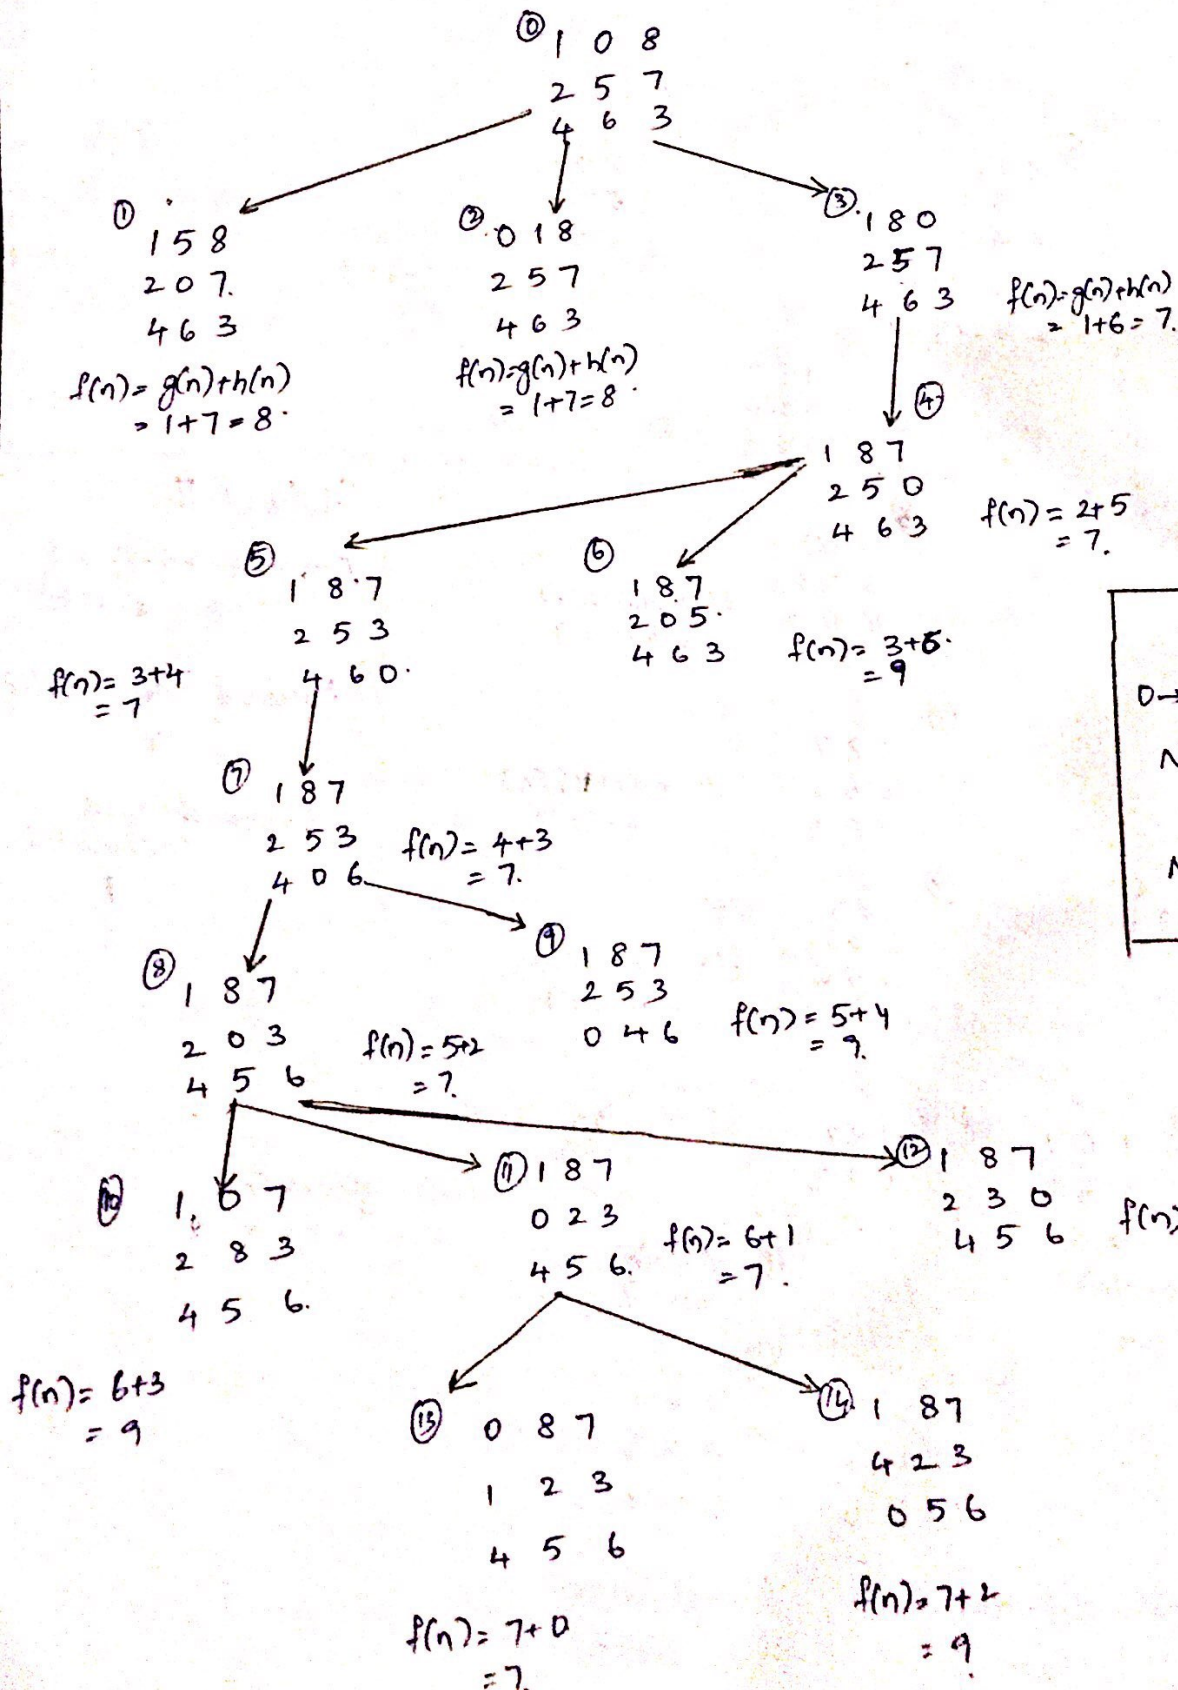 ⓪
1 0 8
2 5 7
4 6 3
①
1 5 8
2 0 7.
4 6 3
f(n) = g(n)+h(n)
= 1+7=8.
②
0 1 8
2 5 7
4 6 3
f(n)=g(n)+h(n)
= 1+7=8.
③
1 8 0
2 5 7
4 6 3
f(n)=g(n)+h(n)
= 1+6=7.
④
1 8 7
2 5 0
4 6 3
f(n) = 2+5
= 7.
⑤
1 8 7
2 5 3
4 6 0.
f(n)= 3+4
= 7
⑥
1 8 7
2 0 5.
4 6 3
f(n)= 3+6.
= 9
0→
N
N
⑦
1 8 7
2 5 3
4 0 6
f(n)= 4+3
= 7.
⑧
1 8 7
2 0 3
4 5 6
f(n) = 5+2
= 7.
⑨
1 8 7
2 5 3
0 4 6
f(n) = 5+4
= 9.
⑩
1 0 7
2 8 3
4 5 6.
f(n)= 6+3
= 9
⑪
1 8 7
0 2 3
4 5 6.
f(n)= 6+1
= 7.
⑫
1 8 7
2 3 0
4 5 6
f(n)
⑬
0 8 7
1 2 3
4 5 6
f(n)= 7+0
= 7.
⑭
1 8 7
4 2 3
0 5 6
f(n)= 7+2
= 9